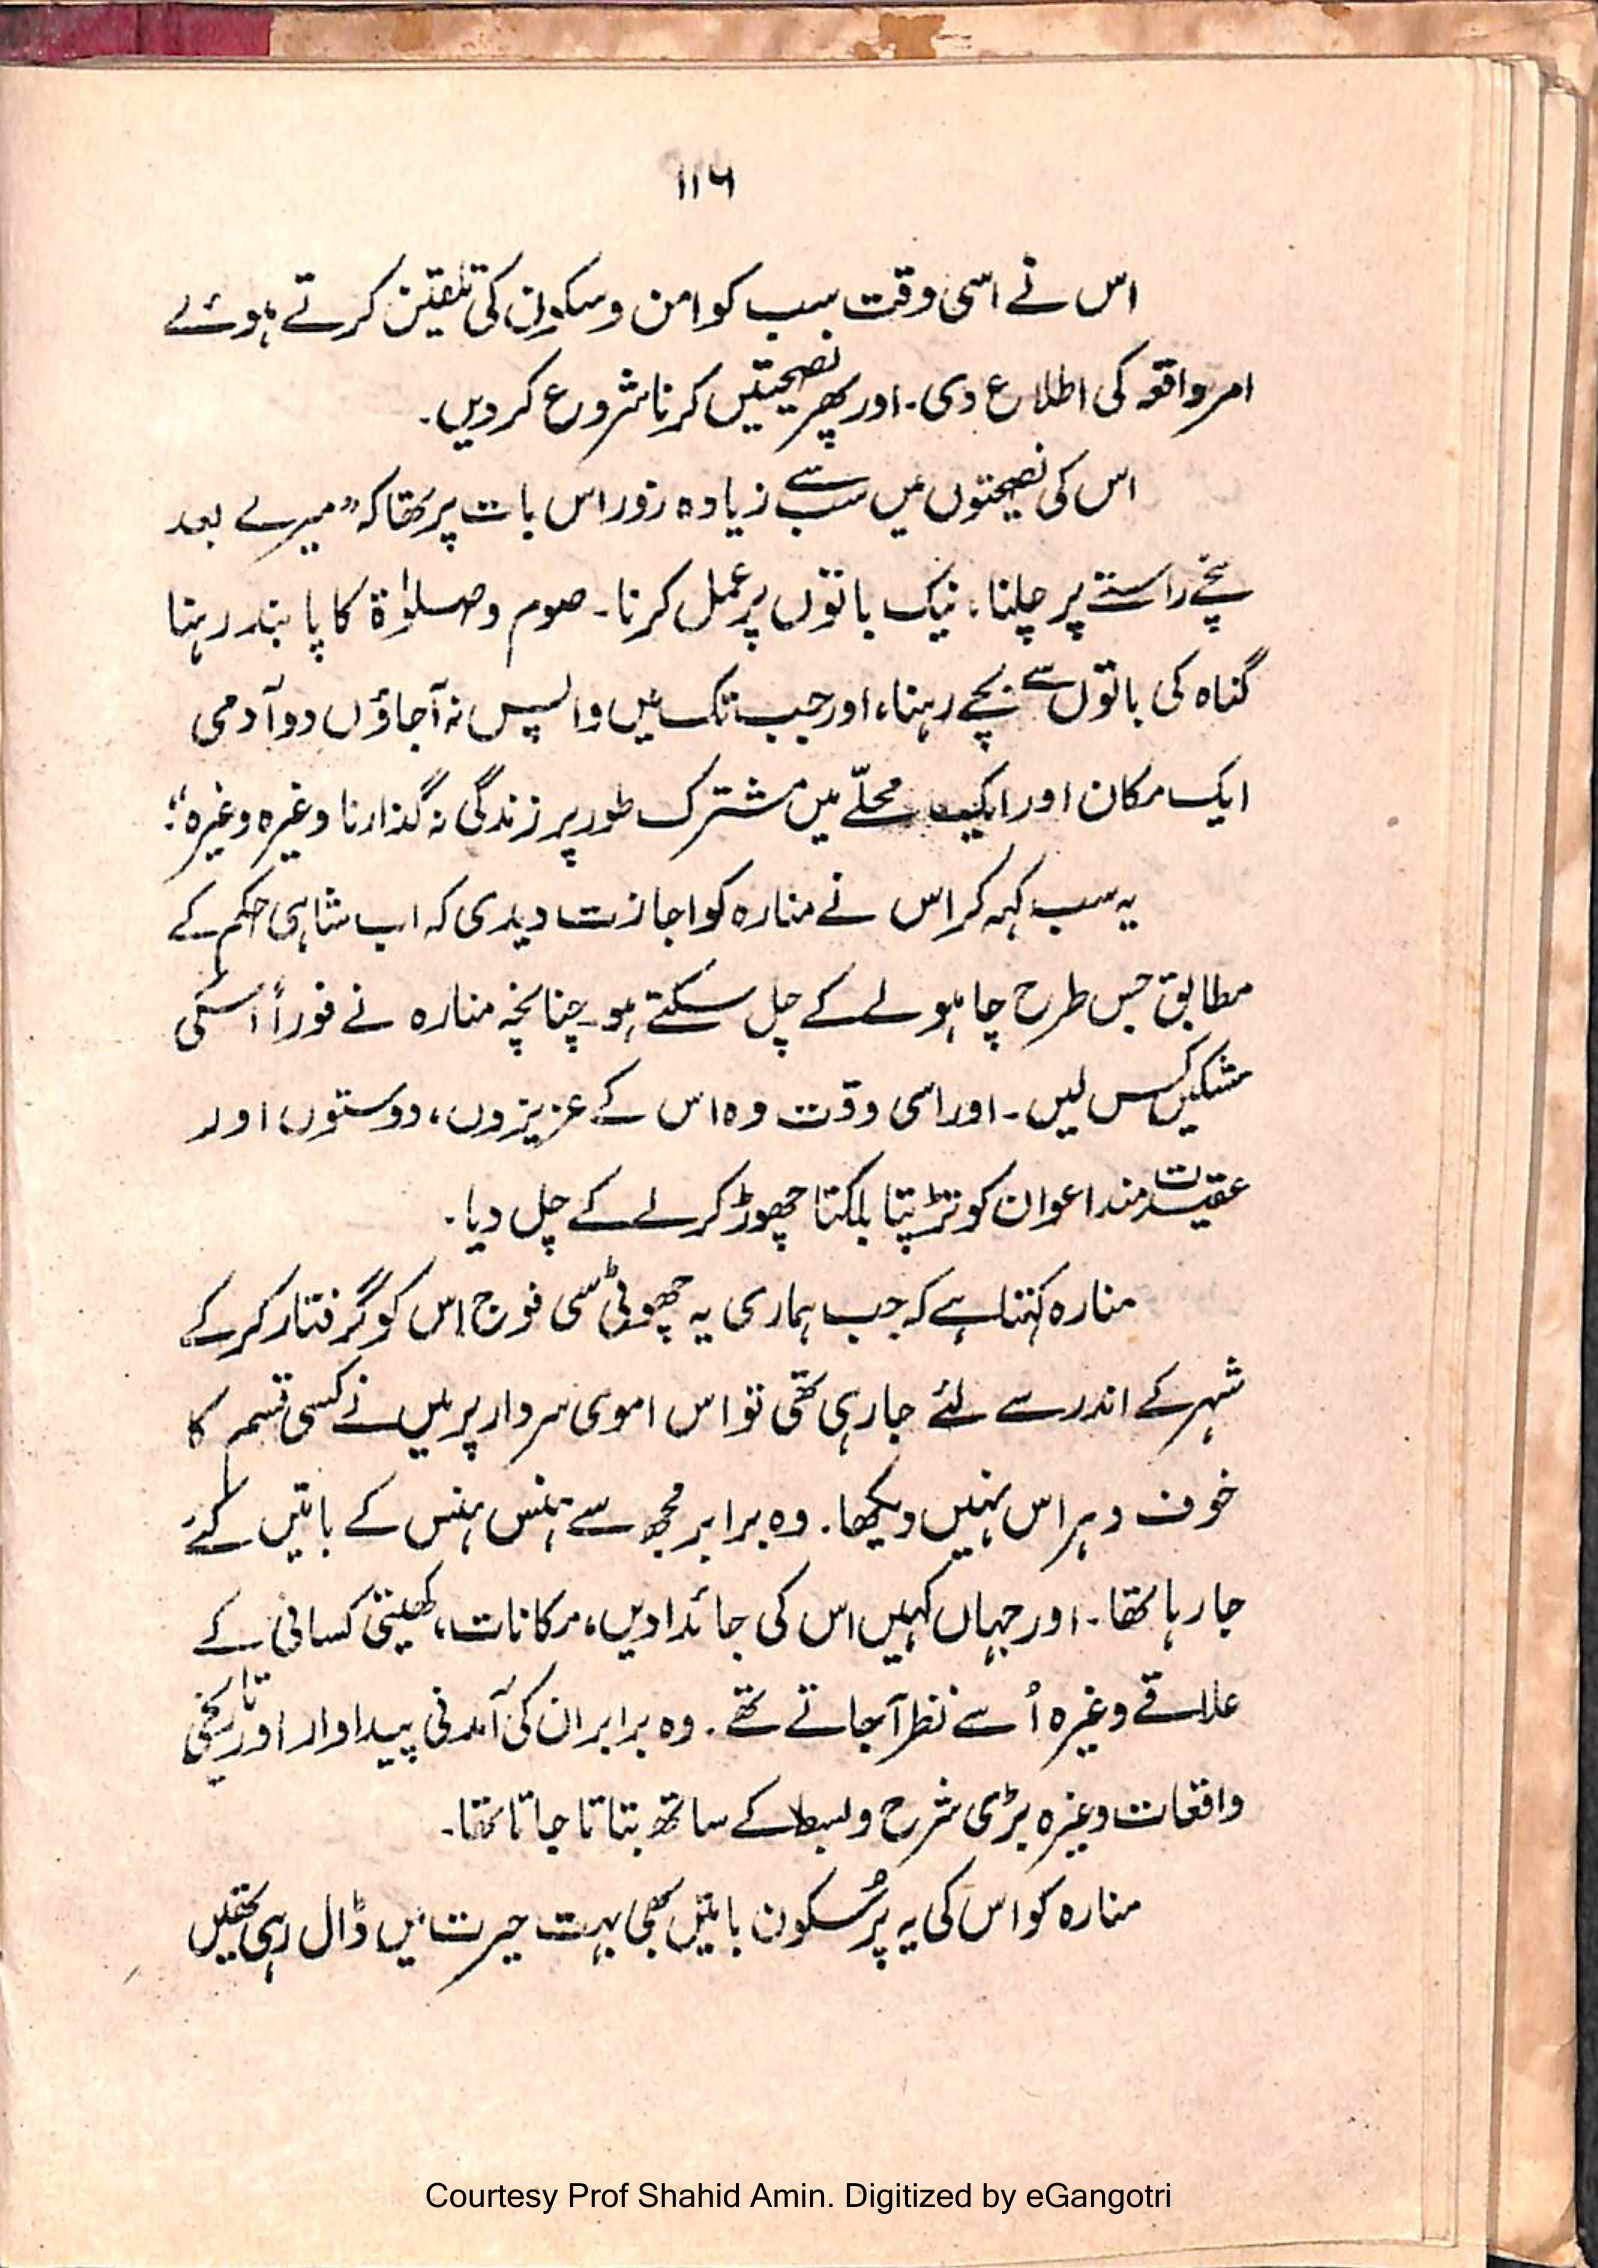 ۱۱۶
اس نے اسی وقت سب کو امن و سکون کی تلقین کرتے ہوئے
امر واقعہ کی اطلاع دی۔ اور پھر نصیحتیں کرنا شروع کردیں۔
اس کی نصیحتوں میں سب سے زیادہ زور اس بات پر تھا کہ ”میرے بعد
سچے راستے پر چلنا، نیک باتوں پر عمل کرنا۔ صوم و صلوٰۃ کا پابند رہنا
گناہ کی باتوں سے بچے رہنا، اور جب تک میں واپس نہ آجاؤں دو آدمی
ایک مکان اور ایک محلّے میں مشترک طور پر زندگی نہ گذارنا وغیرہ وغیرہ“؛
یہ سب کہہ کر اس نے منارہ کو اجازت دیدی کہ اب شاہی حکم کے
مطابق جس طرح چاہو لے کے چل سکتے ہو۔ چنانچہ منارہ نے فوراً اسکی
مشکیں کس لیں۔ اور اسی وقت وہ اس کے عزیزوں، دوستوں اور
عقیدت مند اعوان کو تڑپتا بلکتا چھوڑ کر لے کے چل دیا۔
منارہ کہتا ہے کہ جب ہماری یہ چھوٹی سی فوج اس کو گرفتار کرکے
شہر کے اندر سے لئے جارہی تھی تو اس اموی سردار پر میں نے کسی قسم کا
خوف و ہراس نہیں دیکھا۔ وہ برابر مجھ سے ہنس ہنس کے باتیں کئے
جارہا تھا۔ اور جہاں کہیں اس کی جائدادیں، مکانات، کھیتی کسانی کے
علاقے وغیرہ اُسے نظر آجاتے تھے۔ وہ برابر ان کی آمدنی پیداوار اور تاریخی
واقعات وغیرہ بڑی شرح و بسط کے ساتھ بتاتا جاتا تھا۔
منارہ کو اس کی یہ پُرسکون باتیں بھی بہت حیرت میں ڈال رہی تھیں
Courtesy Prof Shahid Amin. Digitized by eGangotri